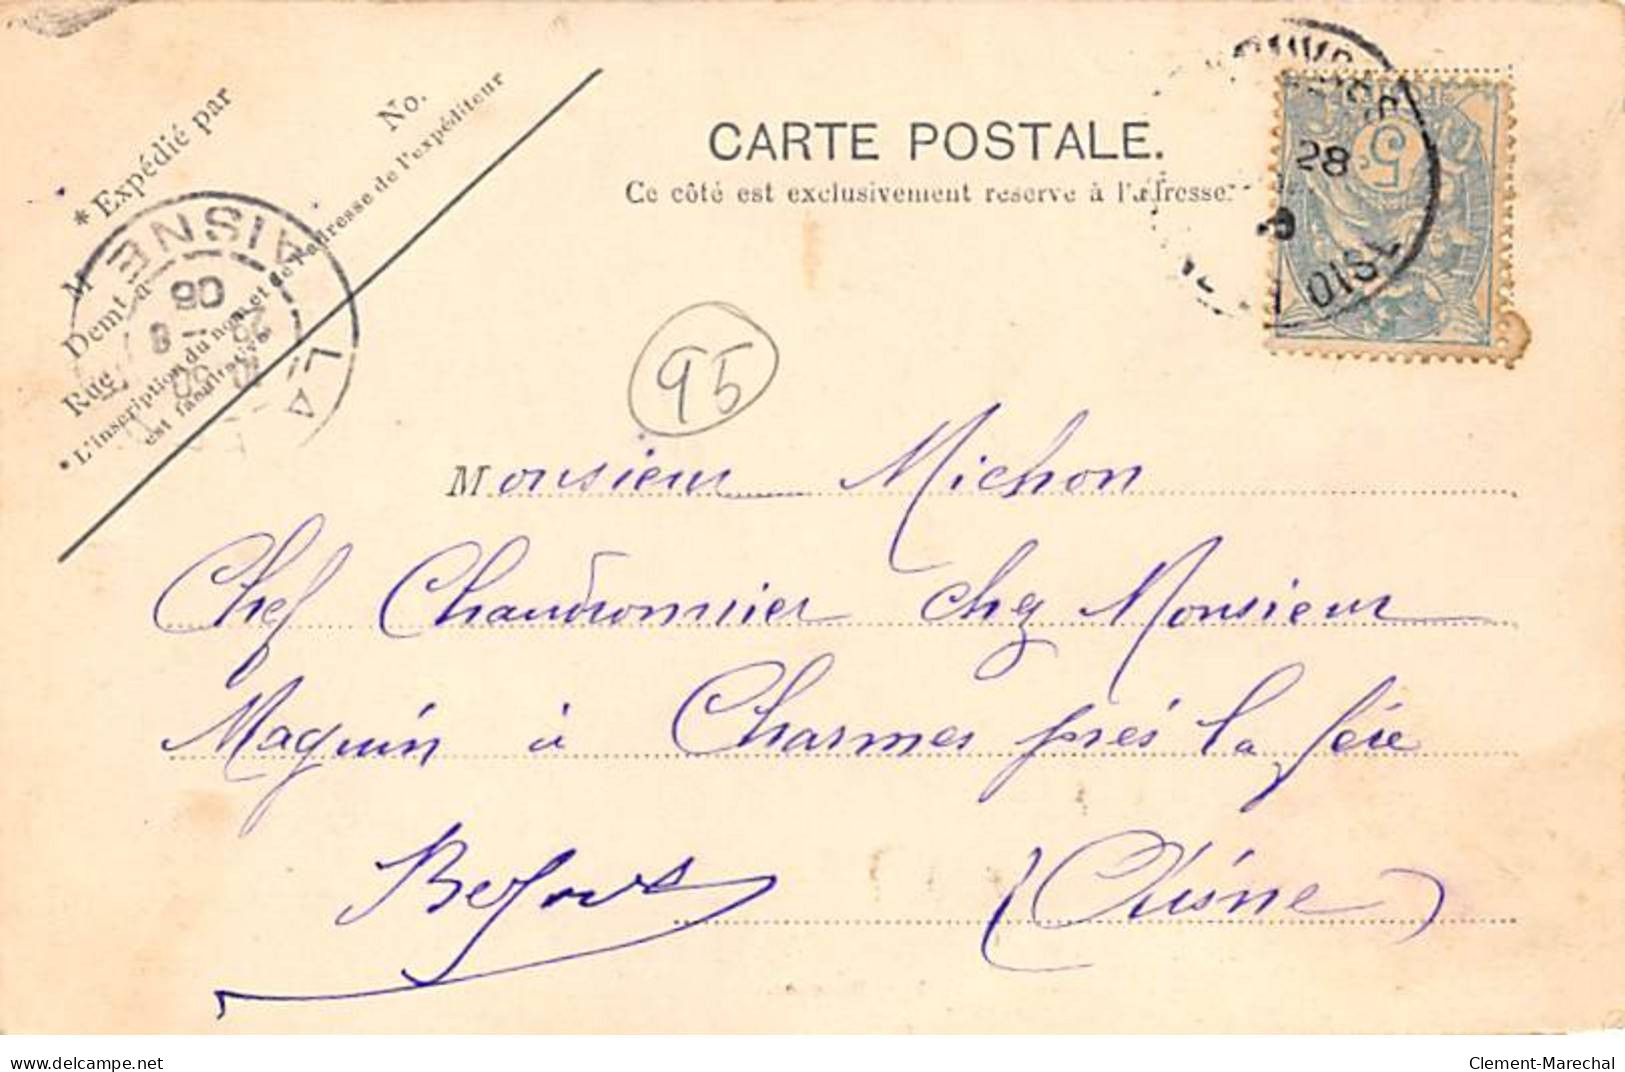 * Expédié par
No.
M
Demt à
Rue
* L'inscription du nom et de l'adresse de l'expéditeur
est facultative
CARTE POSTALE.
Ce côté est exclusivement reserve à l'adresse.
5
28
OISE
AISNE
LA
06
95
Monsieur Michon
Chef Chaudronnier chez Monsieur
Maguin à Charmes près la fère
(Aisne)
www.delcampe.net
Clement-Marechal